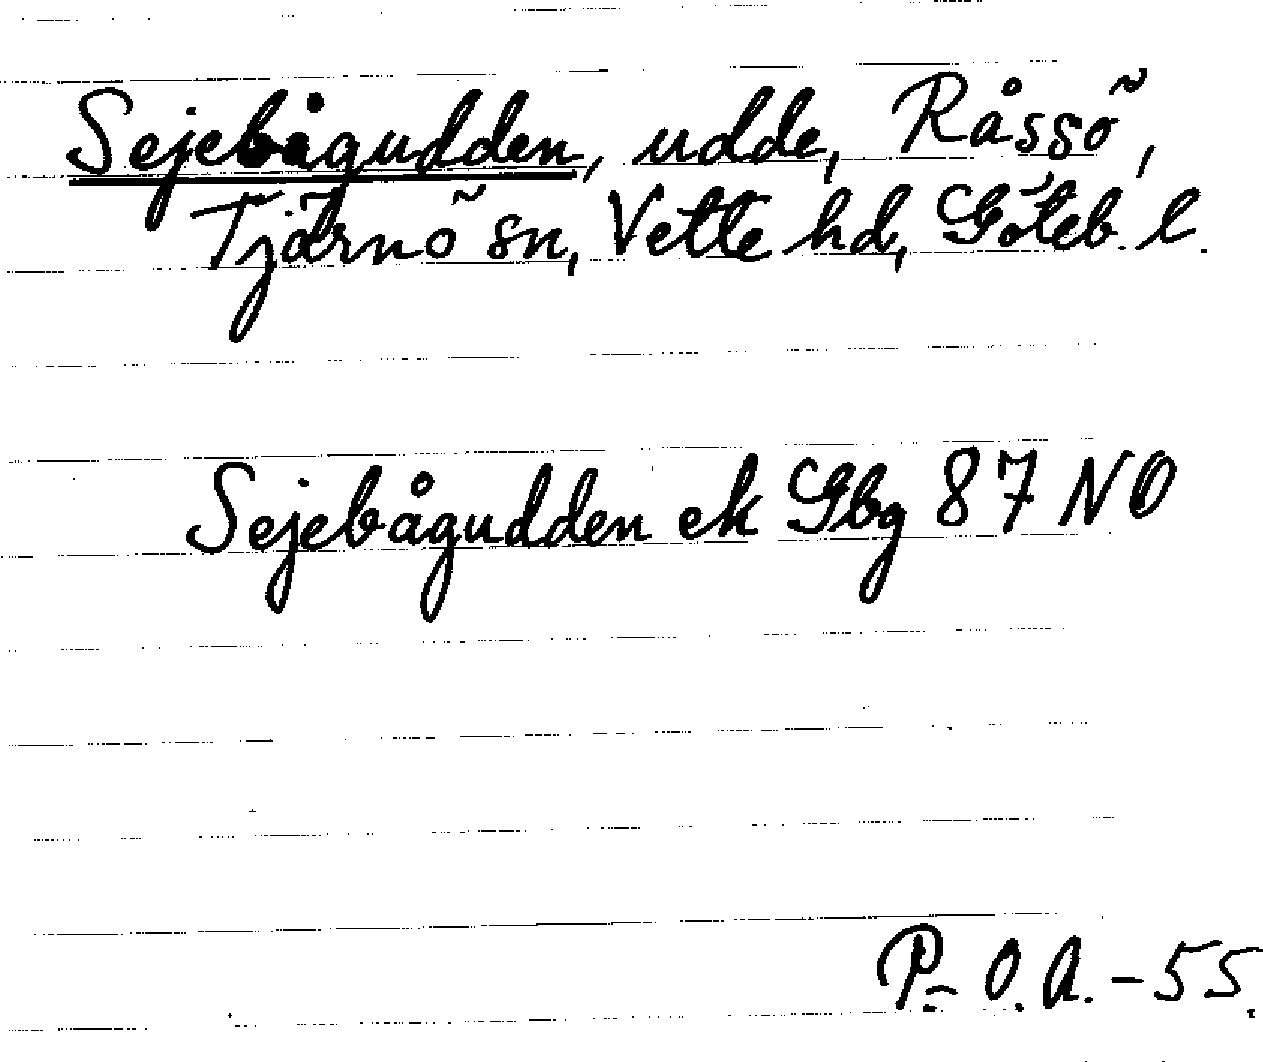 Sejebågudden, udde, Råssö,
Tjärnö sn, Vette hd, Göteb. l.
Sejebågudden ek Gbg 87 NO
P.-O.A.-55.